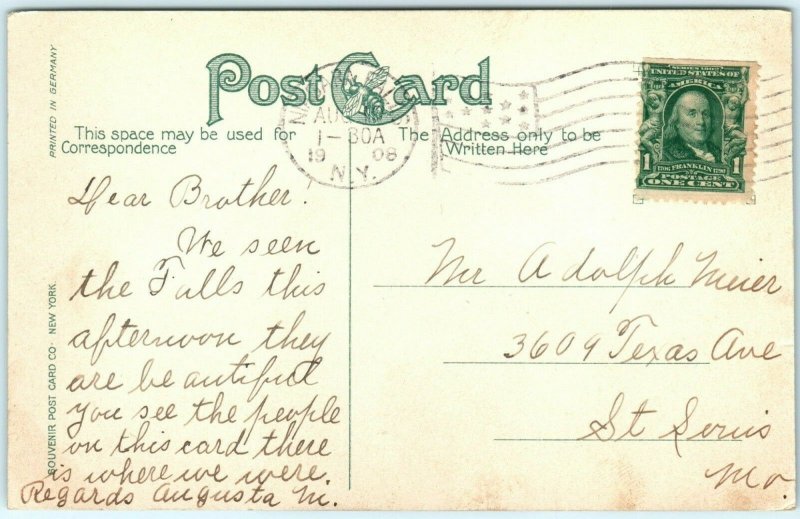 PRINTED IN GERMANY
SOUVENIR POST CARD CO. NEW YORK
Post Card
This space may be used for
Correspondence
The Address only to be
Written Here
AUG
1-30A
19 08
N.Y.
SERIES 1902
UNITED STATES OF
AMERICA
1 1
1706 FRANKLIN 1790
POSTAGE
ONE CENT
Dear Brother!
We seen
the Falls this
afternoon they
are beautiful
you see the people
on this card there
is where we were.
Regards Augusta M.
Mr Adolph Meier
3609 Texas Ave
St Louis
Mo.